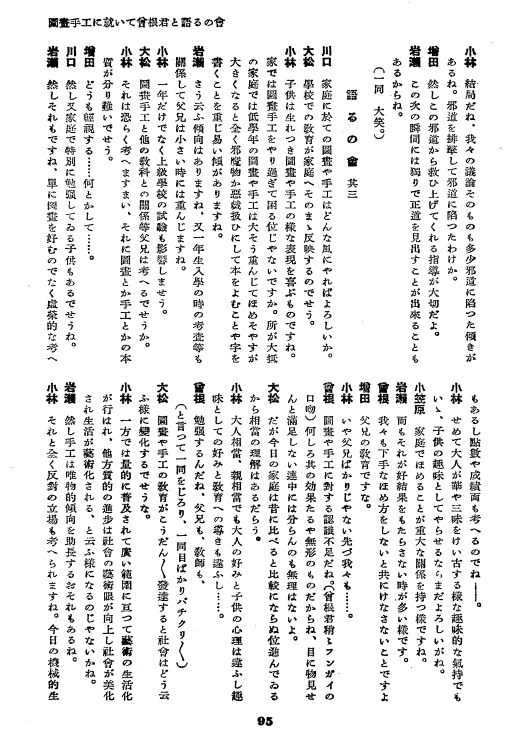 圖畫手工に就いて曾根君と語るの會
小林　結局だね、我々の議論そのものも多少邪道に陷つた傾きが
あるね。邪道を排撃して邪道に陷つたわけか。
増田　然しこの邪道から救ひ上げてくれる指導が大切だよ。
岩瀬　この次の瞬間には獨りで正道を見出すことが出來ることも
あるからね。
（一同　大笑。）
語るの會　其三
川口　家庭に於ての圖畫や手工はどんな風にやればよろしいか。
大松　學校での教育が家庭へそのまゝ反映するのでせう。
小林　子供は生れつき圖畫や手工の樣な表現を喜ぶものですね。
家では圖畫手工をやり過ぎて困る位じやないですか。所が大抵
の家庭では低學年の圖畫や手工は大そう重んじてほめそやすが
大きくなると全く邪魔物か惡戯扱ひにして本をよむことや字を
書くことを重じ易い傾がありますね。
岩瀬　さう云ふ傾向はありますね、又一年生入學の時の考査等も
關係して父兄は小さい時には重んじますね。
小林　一年だけでなく上級學校の試驗も影響しませう。
大松　圖畫手工と他の教科との關係等父兄は考へるでせうか。
小林　それは恐らく考へますまい、それに圖畫とか手工とかの本
質が分り難いでせう。
増田　どうも輕視する……何とかして……。
川口　然し又家庭で特別に勉强してゐる子供もあるでせうね。
岩瀬　然しそれもですね、單に圖畫を好むのでなく虚榮的な考へ
もあるし點數や成績面も考へるのでね――。
小林　せめて大人が華や三味をけい古する樣な趣味的な氣持でも
いゝ、子供の趣味としてやらせるならまだよろしいがね。
小笠原　家庭でほめることが重大な關係を持つ樣ですね。
岩瀬　而もそれが好結果をもたらさない時が多い樣です。
曾根　我々も下手なほめ方をしないと共にけなさないことですよ
増田　父兄の教育ですな。
小林　いや父兄ばかりじやない先づ我々も……。
曾根　圖畫や手工に對する認識不足だね（曾根君稍々フンガイの
口吻）何しろ其の効果たるや無形のものだからね、目に物見せ
んと滿足しない連中には分らんのも無理はないよ。
大松　だが今日の家庭は昔に比べると比較にならぬ位進んでゐる
から相當の理解はあるだらう。
小林　大人相當、親相當でも大人の好みと子供の心理は違ふし趣
味としての好みと教育への導きも違ふし……。
曾根　勉强するんだね、父兄も、教師も、
（と言つて一同をじろり、一同目ばかりパチクリ〳〵）
大松　圖畫や手工の教育がこうだん〳〵發達すると社會はどう云
ふ樣に變化するでせうな。
小林　一方では量的に普及されて廣い範圍に亘つて藝術の生活化
が行はれ、他方質的の進歩は社會の藝術眼が向上し社會が美化
され生活が藝術化される、と云ふ樣になるのじやないかね。
岩瀬　然し手工は唯物的傾向を助長するおそれもあるね。
小林　それと全く反對の立場も考へられますね。今日の機械的生
95